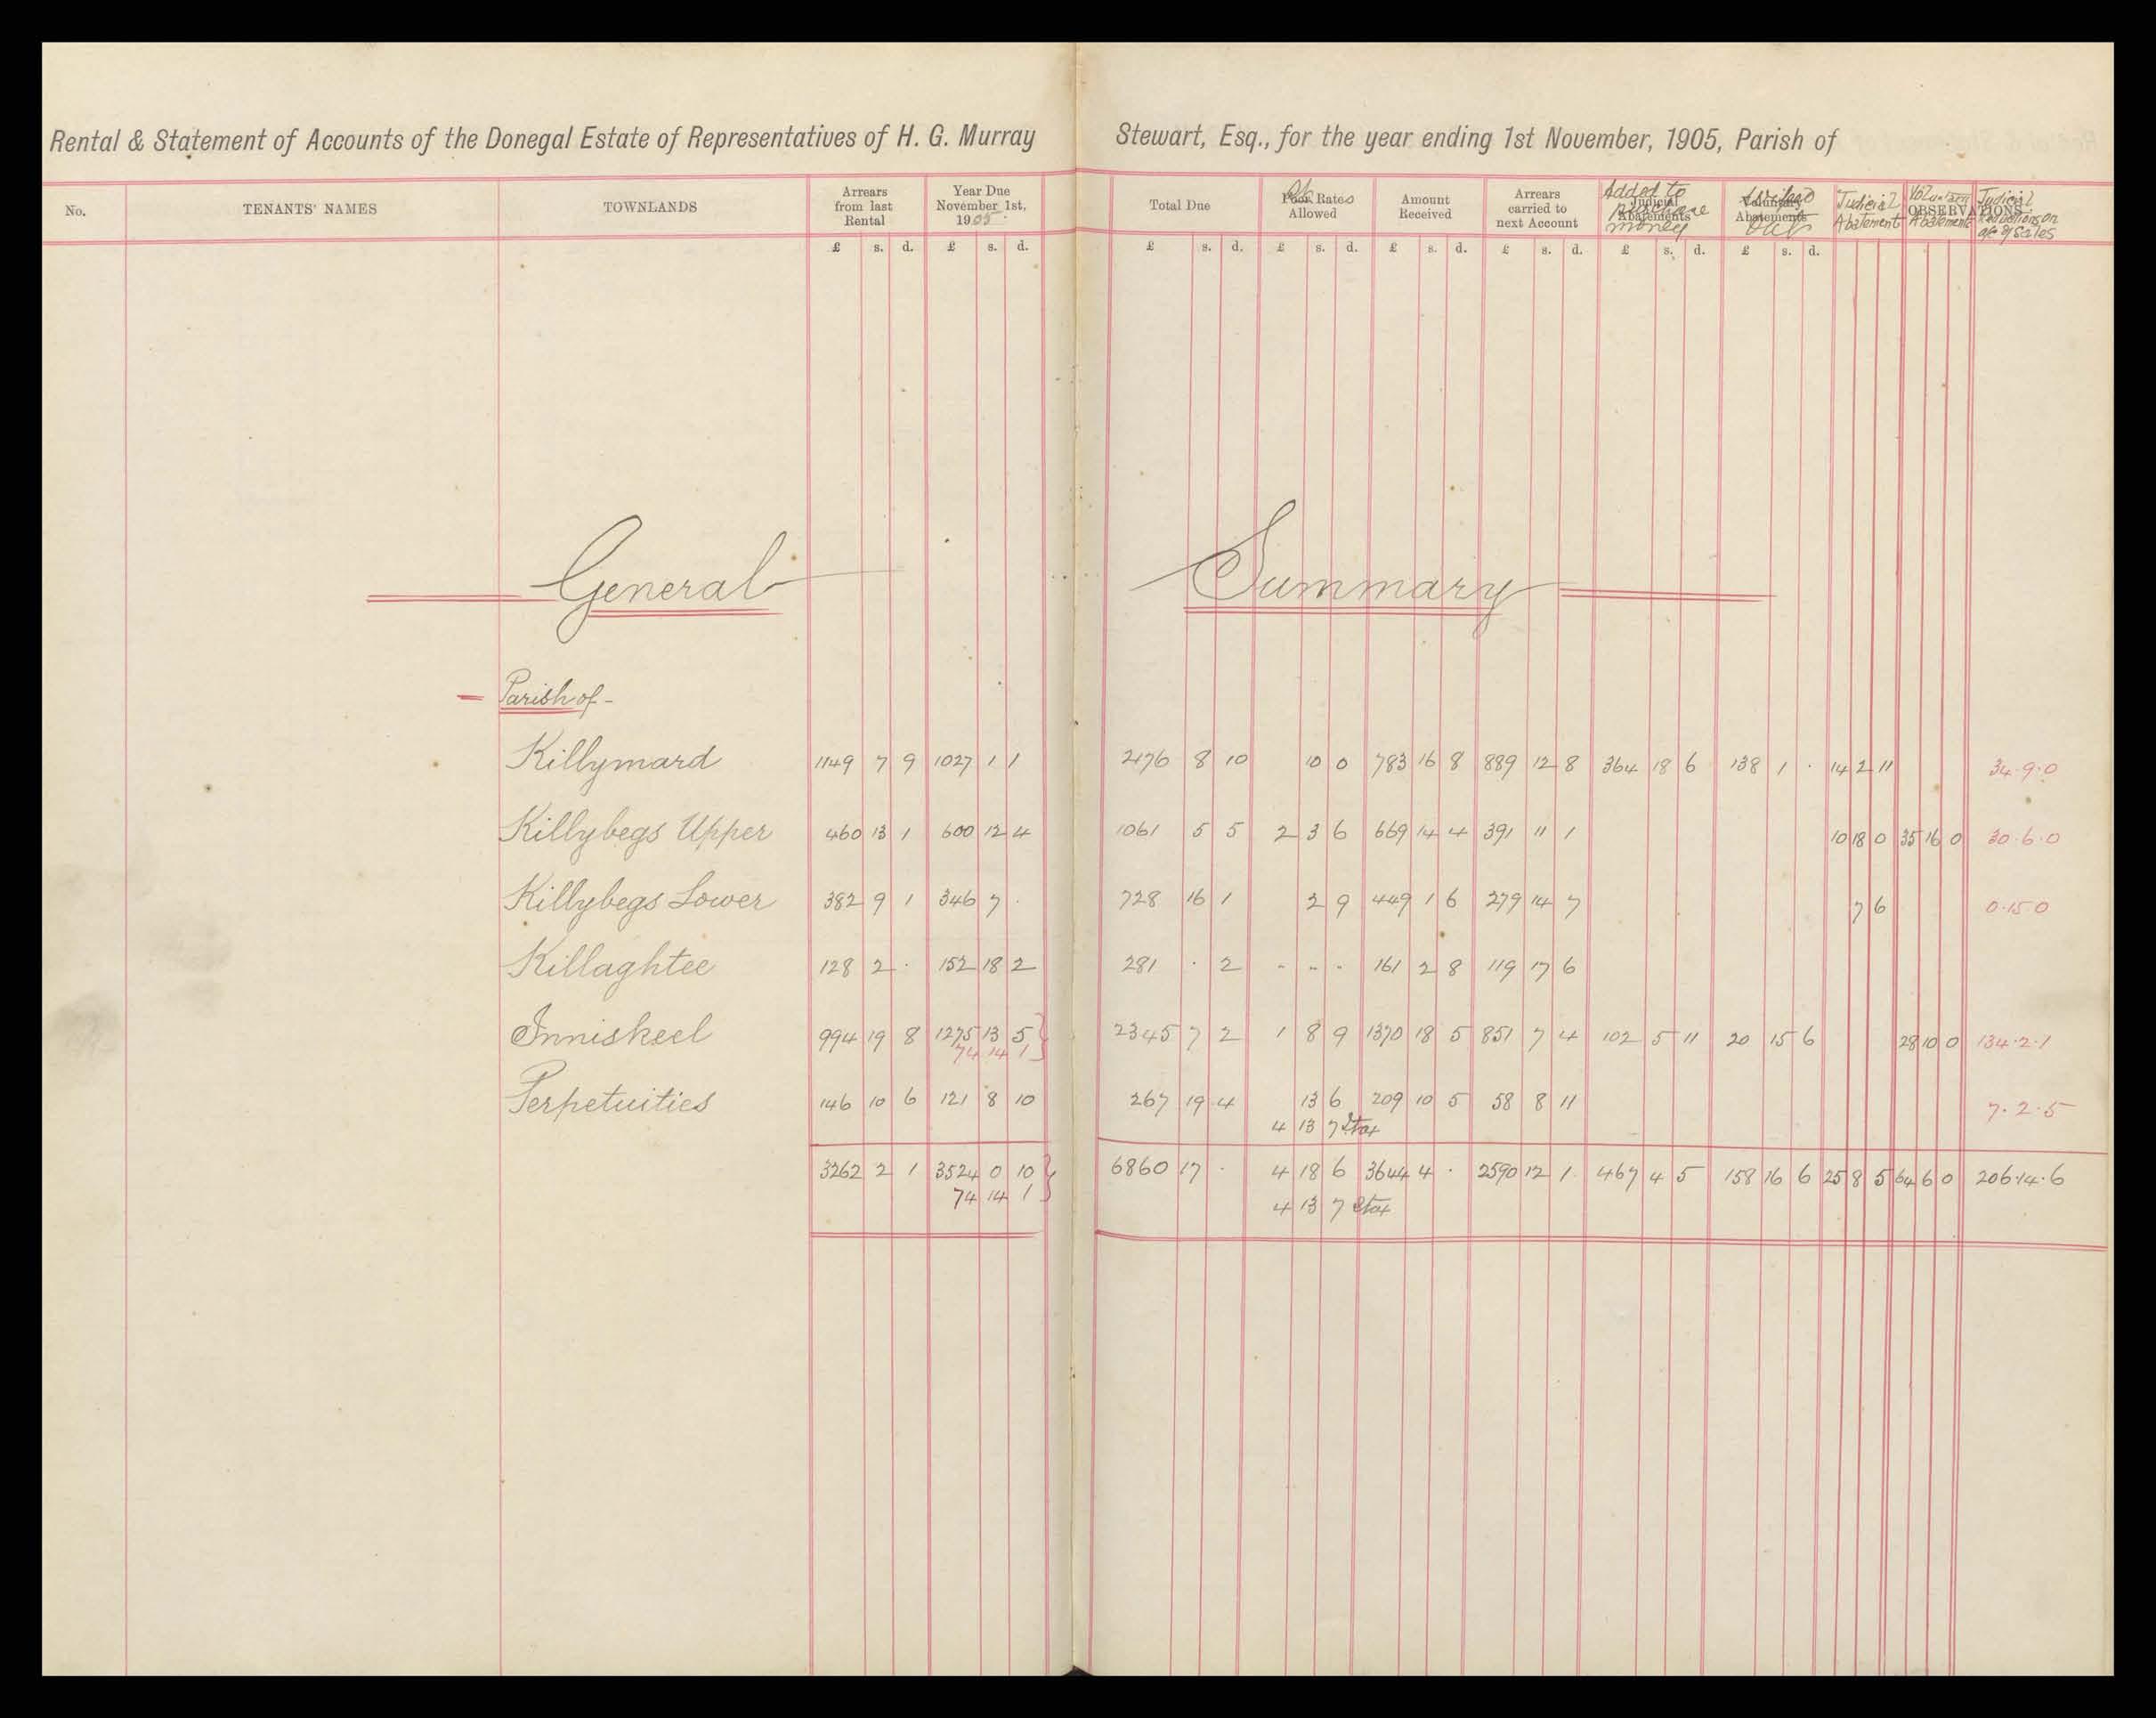 Rental & Statement of Accounts of the Donegal Estate of Representatives of H. G. Murray Stewart, Esq., for the year ending 1st November, 1905, Parish of
No. TENANTS' NAMES TOWNLANDS Arrears from last Rental Year Due November 1st, 1905. Total Due Poor Rates Allowed Amount Received Arrears carried to next Account Added to Judicial Abatements purchase money Voluntary Abatements Out Judicial Abatement Voluntary Abatement OBSERVATIONS. Judicial Reductions on a/c of Sales
£ s. d. £ s. d. £ s. d. £ s. d. £ s. d. £ s. d. £ s. d. £ s. d.
General Summary
Parish of -
Killymard 1149 7 9 1027 1 1 2176 8 10 10 0 783 16 8 889 12 8 364 18 6 138 1 . 14 2 11 34.9.0
Killybegs Upper 460 13 1 600 12 4 1061 5 5 2 3 6 669 14 4 391 11 1 10 18 0 35 16 0 30.6.0
Killybegs Lower 382 9 1 346 7 . 728 16 1 2 9 449 1 6 279 14 7 7 6 0.15 0
Killaghtee 128 2 . 152 18 2 281 . 2 - - - 161 2 8 119 17 6
Inniskeel 994 19 8 1275 13 5 2345 7 2 1 8 9 1370 18 5 851 7 4 102 5 11 20 15 6 28 10 0 134.2.1
74 14 1
Perpetuities 146 10 6 121 8 10 267 19 4 13 6 209 10 5 58 8 11 7.2.5
4 13 7 Itax
3262 2 1 3524 0 10 6860 17 . 4 18 6 3644 4 . 2590 12 1 467 4 5 158 16 6 25 8 5 64 6 0 206.14.6
74 14 1 4 13 7 Itax